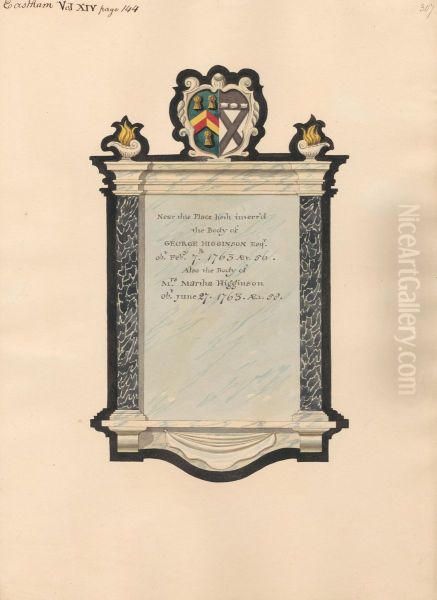 Eastham Vol XIV page 144
307
Near this Place lieth interr'd
the Body of
GEORGE HIGGINSON Esqr.
obt. Feby. 7th. 1763 Æt. 56.
Also the Body of
Mrs. Martha Higginson
Obt. June 27. 1763. Æt. 50.
NiceArtGallery.com